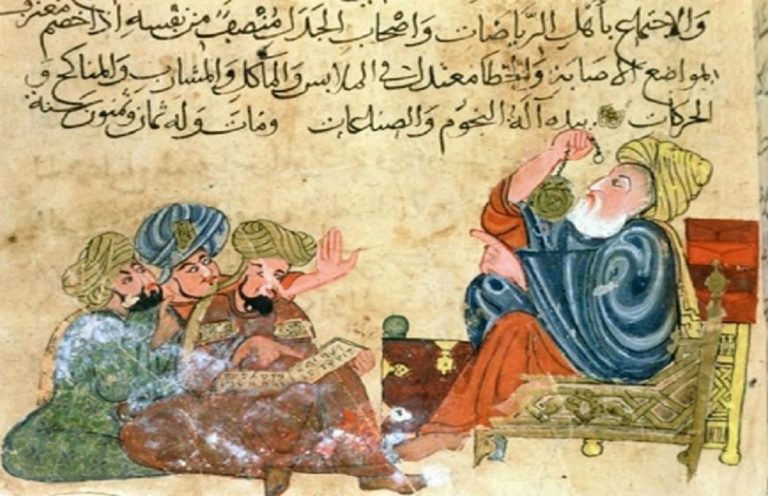 والاجتماع باهل الرياضات واصحاب الجدل منصف من نفسه اذا خصم معترف
بمواضع الاصابة والخطا معتدل في الملابس والماكل والمشارب والمناكح و
الحركات بيده آلة النجوم والصناعات ومات وله ثمان وثمنون سنة